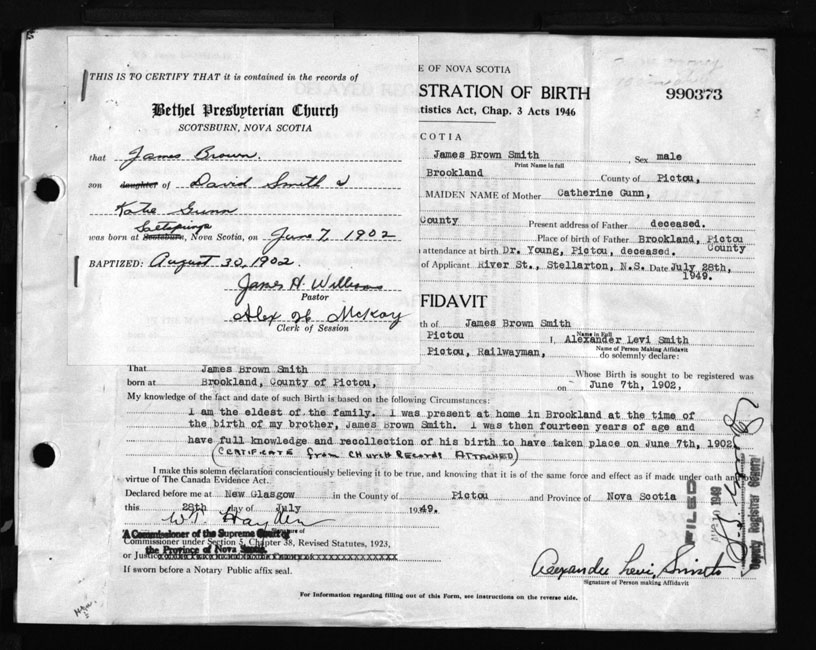 THIS IS TO CERTIFY THAT it is contained in the records of
Bethel Presbyterian Church
SCOTSBURN, NOVA SCOTIA
that James Brown.
son daughter of David Smith &
Katie Gunn
Saltsprings
was born at Scotsburn, Nova Scotia, on June 7, 1902
BAPTIZED: August 30, 1902.
James H. Williams
Pastor
Alex McKay
Clerk of Session
E OF NOVA SCOTIA
STRATION OF BIRTH
990373
tistics Act, Chap. 3 Acts 1946
COTIA
James Brown Smith Sex male
Print Name in full
Brookland County of Pictou,
MAIDEN NAME of Mother Catherine Gunn,
County Present address of Father deceased.
Place of birth of Father Brookland, Pictou
County
attendance at birth Dr. Young, Pictou, deceased.
of Applicant River St., Stellarton, N.S. Date July 28th,
1949.
FIDAVIT
th of James Brown Smith
Name in Full
Pictou I, Alexander Levi Smith
Name of Person Making Affidavit
Pictou, Railwayman, do solemnly declare:
That James Brown Smith Whose Birth is sought to be registered was
born at Brookland, County of Pictou, on June 7th, 1902,
My knowledge of the fact and date of such Birth is based on the following Circumstances:
I am the eldest of the family. I was present at home in Brookland at the time of
the birth of my brother, James Brown Smith. I was then fourteen years of age and
have full knowledge and recollection of his birth to have taken place on June 7th, 1902
(CERTIFICATE from CHURCH RECORDS ATTACHED)
I make this solemn declaration conscientiously believing it to be true, and knowing that it is of the same force and effect as if made under oath and
virtue of The Canada Evidence Act.
Declared before me at New Glasgow in the County of Pictou and Province of Nova Scotia
this 28th day of July 1949.
W. Hayden
Signature of
A Commissioner of the Supreme Court of
Commissioner under Section 5, Chapter 38, Revised Statutes, 1923,
the Province of Nova Scotia.
or Justice
If sworn before a Notary Public affix seal.
Alexander Levi Smith
Signature of Person making Affidavit
FILED
1949
Deputy Registrar General
For Information regarding filling out of this Form, see instructions on the reverse side.